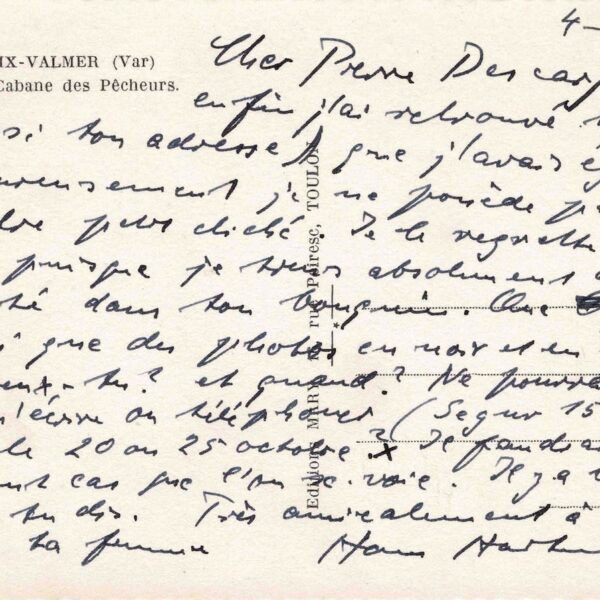 4-
IX-VALMER (Var)
Cabane des Pêcheurs.
Cher Pierre Descarg
enfin j'ai retrouvé
si ton adresse que j'avais ég
reusement je ne possède p
petit cliché. Je le regrette
puisque je tiens absolument
té dans ton bouquin. Que
que des photos en noir et en
eux-tu? et quand? Ne pourra
m'écrire ou téléphoner (Segur 15
le 20 ou 25 octobre? x Je faudra
cas que l'on se voie. Il y a
tu dis. Très amicalement à
ta femme Hans Hartu
Editions MAR rue Peiresc, TOULON